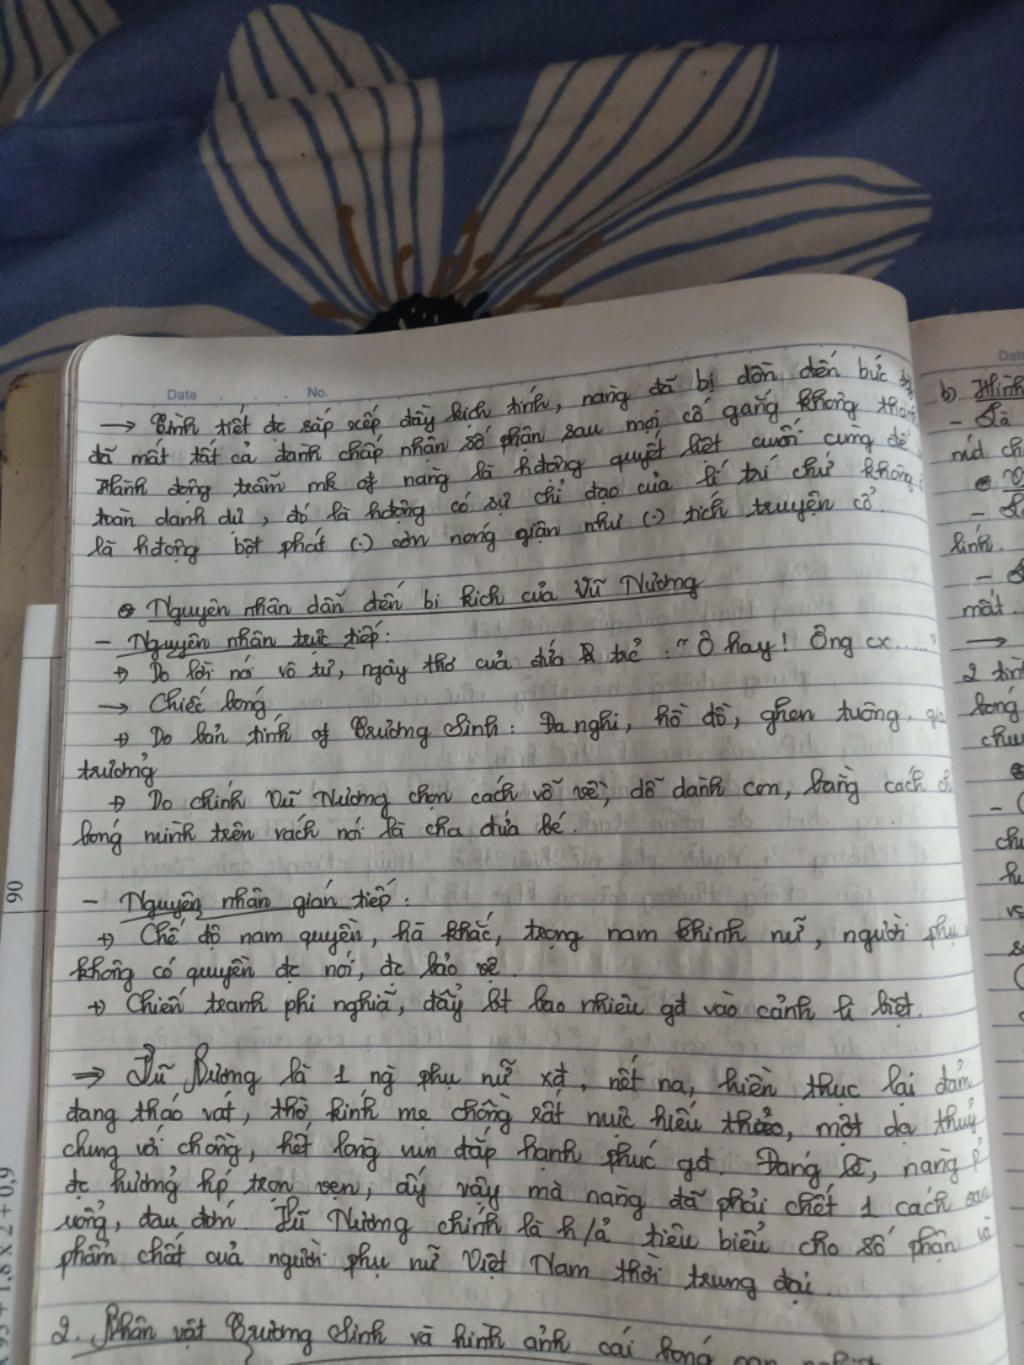 Date No.
→ Tình tiết đc sắp xếp đầy kịch tính, nàng đã bị dồn đến bức
đã mất tất cả đành chấp nhận số phận sau mọi cố gắng không
Hành động trẫm mk of nàng là hđông quyết liệt cuối cùng để
toàn danh dự, đó là hđộng có sự chỉ đạo của lí trí chứ không
là hđộng bột phát (.) cơn nóng giận như (.) tích truyện cổ.
Nguyên nhân dẫn đến bi kịch của Vũ Nương
- Nguyên nhân trực tiếp:
+) Do lời nói vô tư, ngây thơ của đứa trẻ: "Ô hay! Ông cx....."
→ Chiếc bóng
+) Do bản tính of Trương Sinh: Đa nghi, hồ đồ, ghen tuông, gia
trưởng
+) Do chính Vũ Nương chọn cách vỗ về, dỗ dành con, bằng cách
bóng mình trên vách nói là cha đứa bé.
- Nguyên nhân gián tiếp:
+) Chế độ nam quyền, hà khắc, trọng nam khinh nữ, người phụ
không có quyền đc nói, đc bảo vệ.
+) Chiến tranh phi nghĩa, đẩy bt bao nhiêu gđ vào cảnh li biệt.
⇒ Vũ Nương là 1 ng phụ nữ xđ, nết na, hiền thục lại đảm
đang tháo vát, thờ kính mẹ chồng rất mực hiếu thảo, một dạ thuỷ
chung với chồng, hết lòng vun đắp hạnh phúc gđ. Đáng lẽ, nàng p
đc hưởng hp trọn vẹn, ấy vậy mà nàng đã phải chết 1 cách oan
uổng, đau đớn. Vũ Nương chính là h/ả tiêu biểu cho số phận và
phẩm chất của người phụ nữ Việt Nam thời trung đại.
2. Nhân vật Trương Sinh và hình ảnh cái bóng
Date
b) Hình
- Là
núi ch
lính.
mất.
→
2 tìn
bóng
chu
90
1,8 x 2 + 0,9